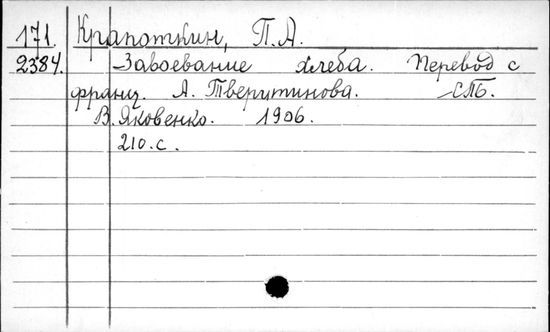 171. Крапоткин, П. А.
2384. Завоевание хлеба. Перевод с
франц. А. Тверитинова. СПБ.
В. Яковенко. 1906.
210. с.